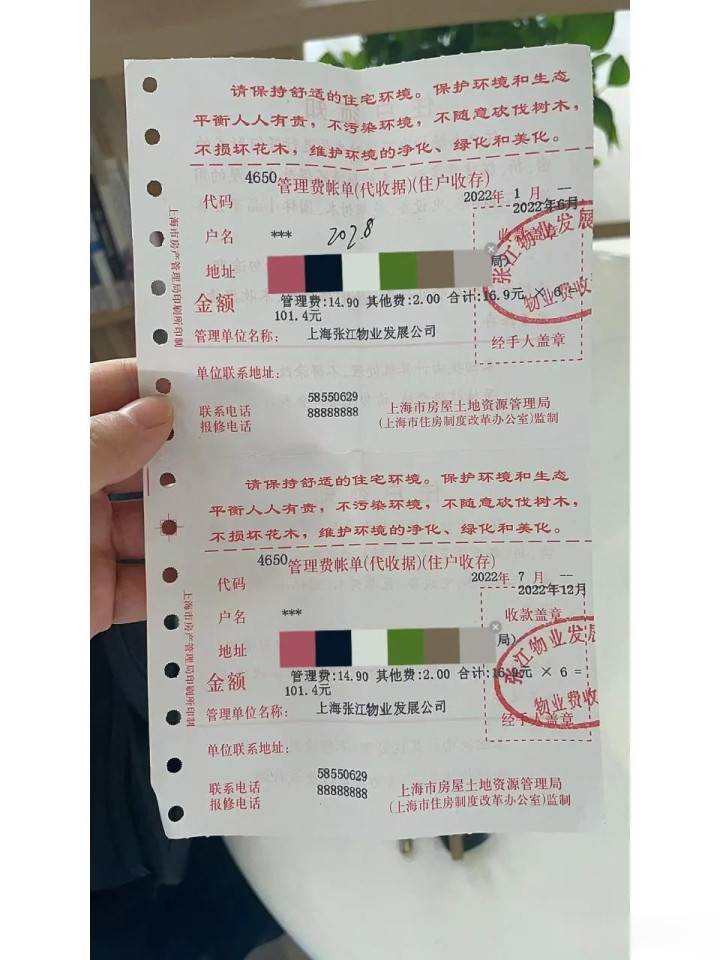 请保持舒适的住宅环境。保护环境和生态
平衡人人有责，不污染环境，不随意砍伐树木，
不损坏花木，维护环境的净化、绿化和美化。
4650管理费帐单(代收据)(住户收存)
代码
2022年 1 月 —
2022年6月
户名 *** 202.8
收款盖章
地址 局)
金额 管理费:14.90 其他费:2.00 合计:16.9元 × 6 =
101.4元
管理单位名称: 上海张江物业发展公司
经手人盖章
单位联系地址:
联系电话 58550629
报修电话 88888888
上海市房屋土地资源管理局
(上海市住房制度改革办公室)监制
上海市房产管理局印刷所印制
张江物业发展
物业费收
请保持舒适的住宅环境。保护环境和生态
平衡人人有责，不污染环境，不随意砍伐树木，
不损坏花木，维护环境的净化、绿化和美化。
4650管理费帐单(代收据)(住户收存)
代码
2022年 7 月 —
2022年12月
户名 ***
收款盖章
地址 局)
金额 管理费:14.90 其他费:2.00 合计:16.9元 × 6 =
101.4元
管理单位名称: 上海张江物业发展公司
经手人盖章
单位联系地址:
联系电话 58550629
报修电话 88888888
上海市房屋土地资源管理局
(上海市住房制度改革办公室)监制
上海市房产管理局印刷所印制
张江物业发
物业费收